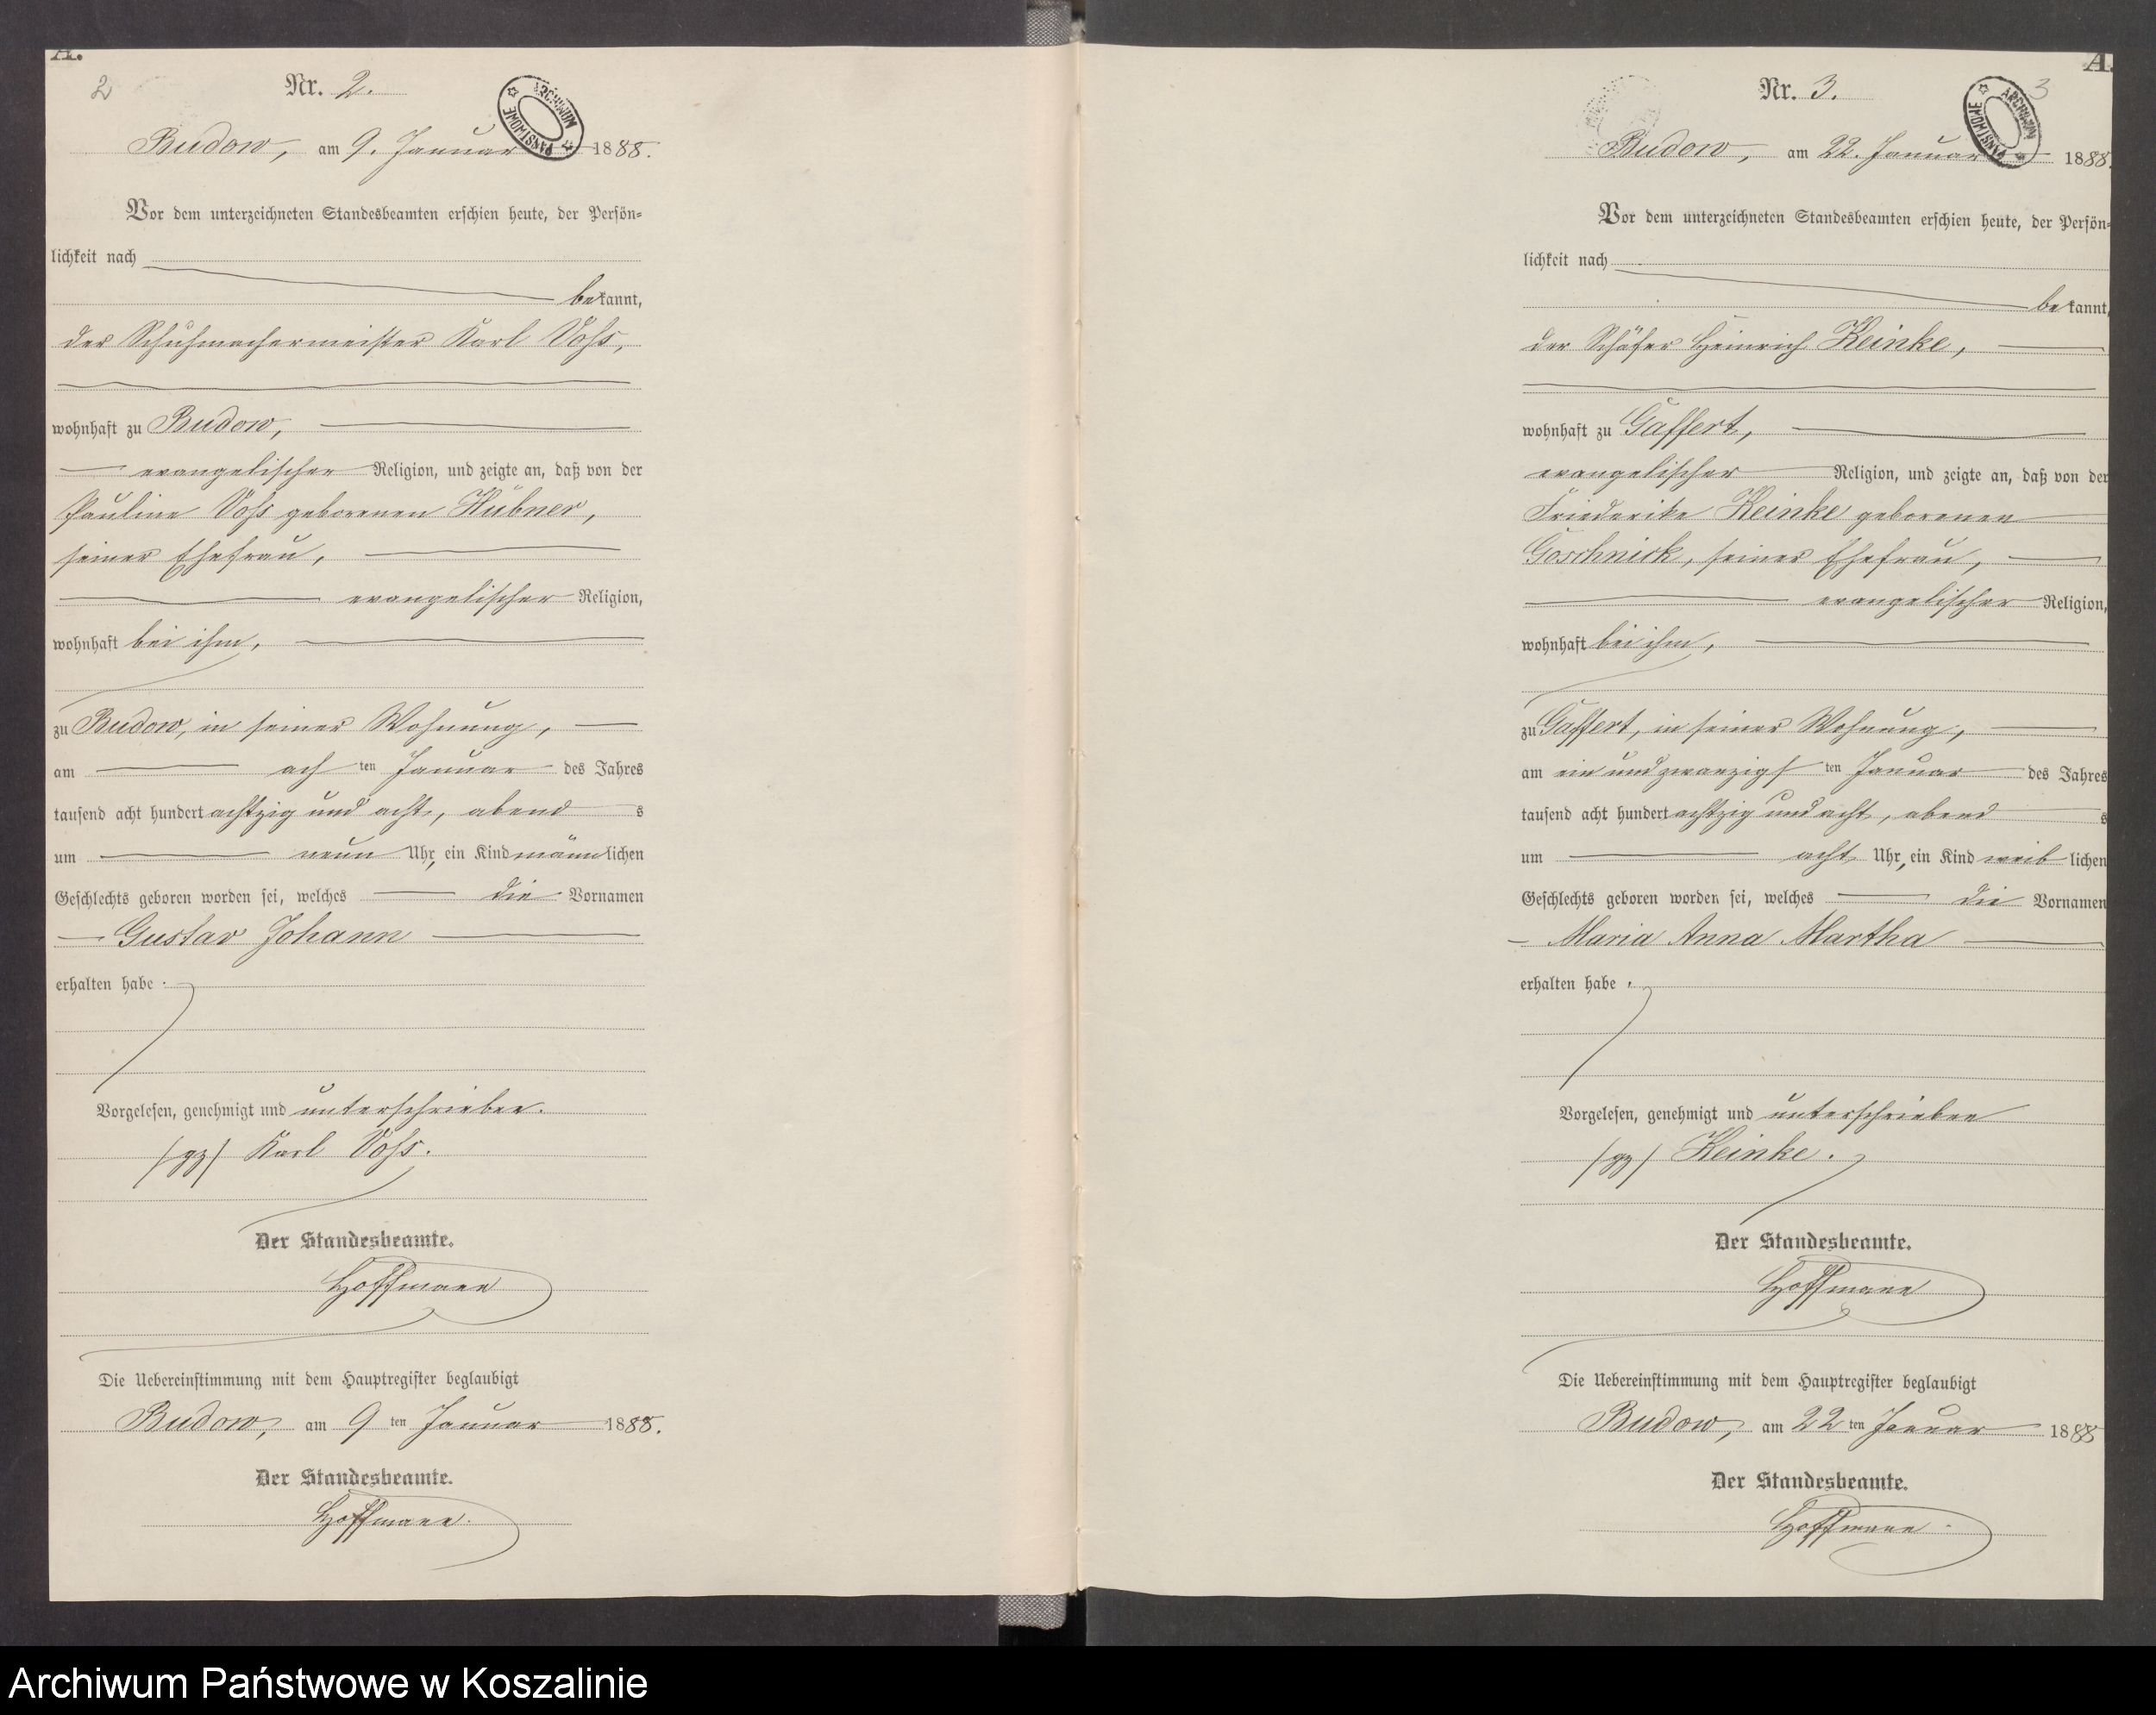 A.
2
Nr. 2.
ARCHIWUM PAŃSTWOWE
Budow, am 9. Januar 1888.
Vor dem unterzeichneten Standesbeamten erschien heute, der Persön=
lichkeit nach
bekannt,
der Schuhmachermeister Karl Voß,
wohnhaft zu Budow,
evangelischer Religion, und zeigte an, daß von der
Pauline Voß geborenen Hübner,
seiner Ehefrau,
evangelischer Religion,
wohnhaft bei ihm,
zu Budow, in seiner Wohnung,
am ach ten Januar des Jahres
tausend acht hundert achtzig und acht, abend s
um neun Uhr, ein Kind männlichen
Geschlechts geboren worden sei, welches die Vornamen
Gustav Johann
erhalten habe.
Vorgelesen, genehmigt und unterschrieben.
(gz) Karl Voß.
Der Standesbeamte.
Hoffmann
Die Uebereinstimmung mit dem Hauptregister beglaubigt
Budow, am 9 ten Januar 1888.
Der Standesbeamte.
Hoffmann.
A.
3
Nr. 3.
ARCHIWUM PAŃSTWOWE
Budow, am 22. Januar 1888.
Vor dem unterzeichneten Standesbeamten erschien heute, der Persön=
lichkeit nach
bekannt,
der Schäfer Heinrich Reinke,
wohnhaft zu Gaffert,
evangelischer Religion, und zeigte an, daß von der
Friederike Reinke geborenen
Goschnick, seiner Ehefrau,
evangelischer Religion,
wohnhaft bei ihm,
zu Gaffert, in seiner Wohnung,
am ein und zwanzigs ten Januar des Jahres
tausend acht hundert achtzig und acht, abend s
um acht Uhr, ein Kind weib lichen
Geschlechts geboren worden sei, welches die Vornamen
Maria Anna Martha
erhalten habe.
Vorgelesen, genehmigt und unterschrieben
(gz) Reinke.
Der Standesbeamte.
Hoffmann
Die Uebereinstimmung mit dem Hauptregister beglaubigt
Budow, am 22 ten Januar 1888
Der Standesbeamte.
Hoffmann.
Archiwum Państwowe w Koszalinie